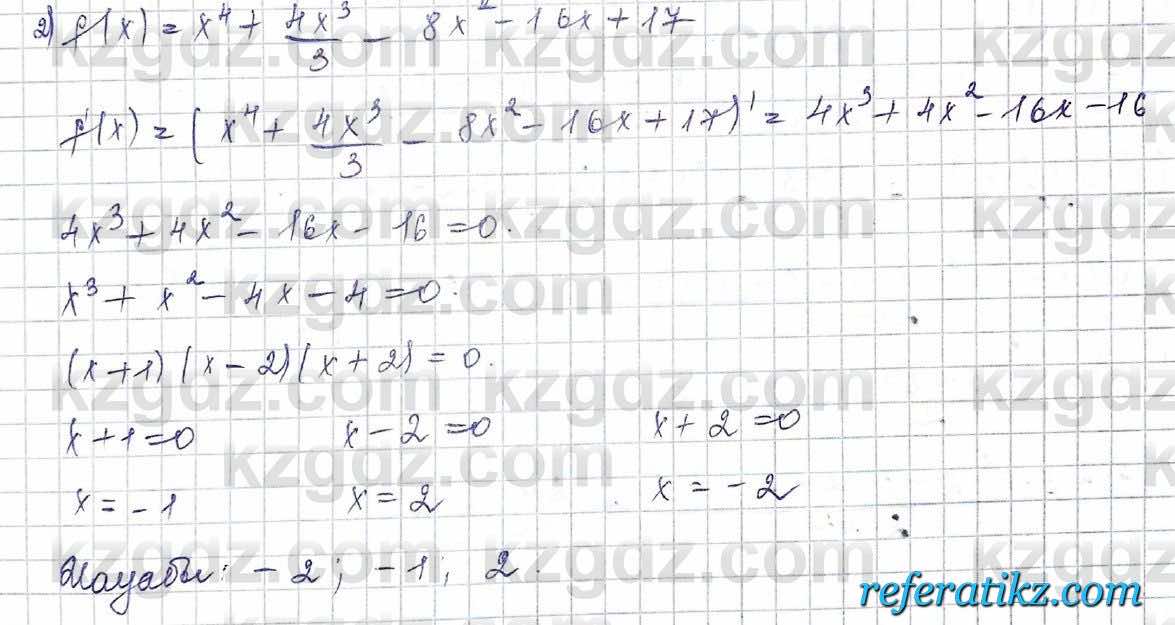 2) f(x) = x⁴ + 4x³/3 - 8x² - 16x + 17
f'(x) = (x⁴ + 4x³/3 - 8x² - 16x + 17)' = 4x³ + 4x² - 16x - 16
4x³ + 4x² - 16x - 16 = 0.
x³ + x² - 4x - 4 = 0.
(x+1)(x-2)(x+2) = 0.
x+1=0 x-2=0 x+2=0
x=-1 x=2 x=-2
Жауабы: -2; -1; 2.
referatikz.com